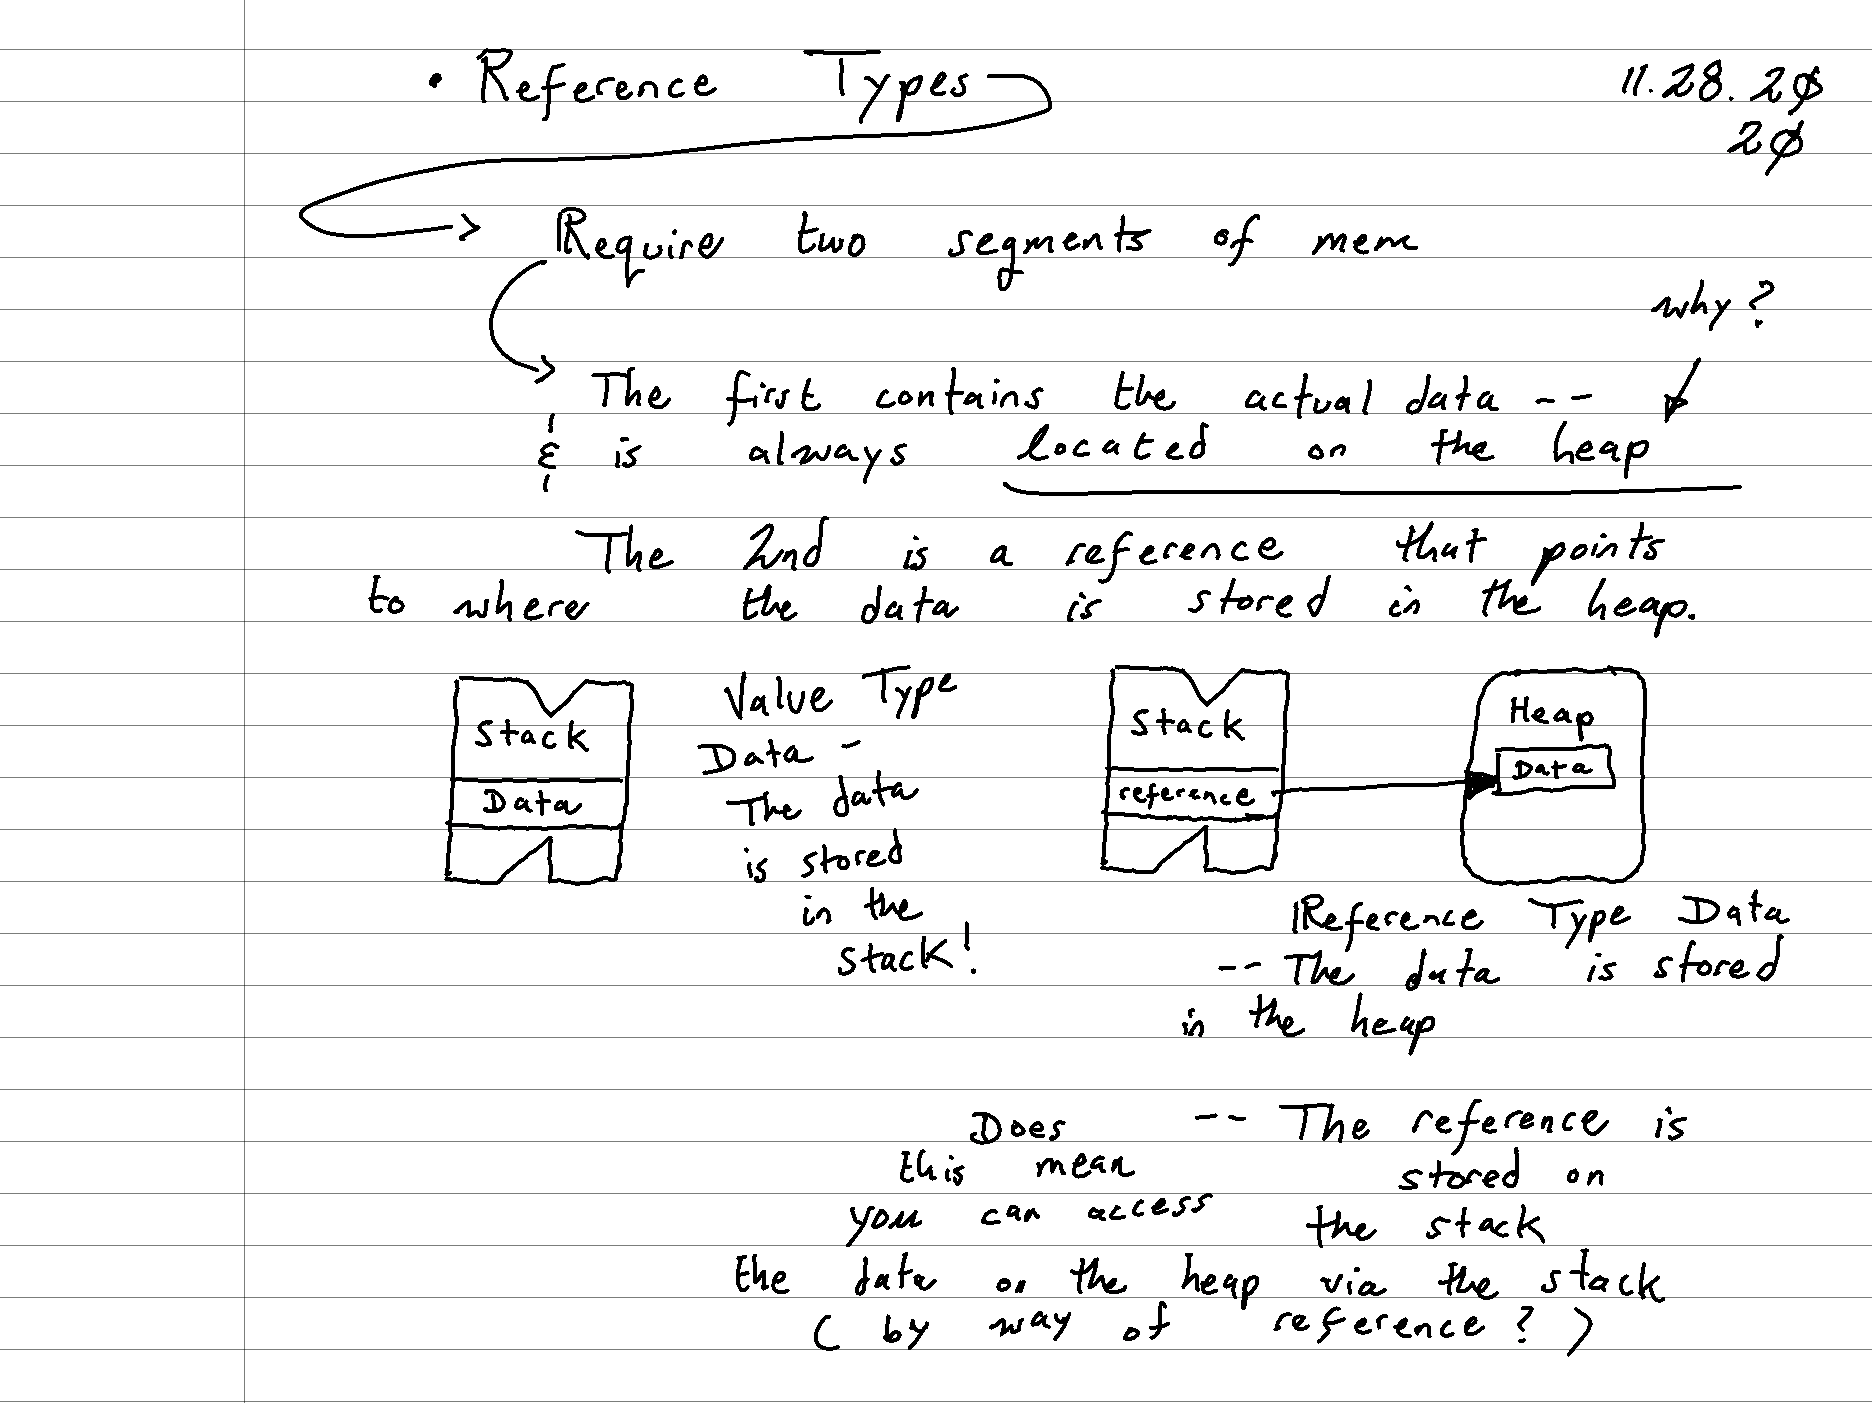 • Reference Types
11.28.20
20
Require two segments of mem
why?
The first contains the actual data --
& is always located on the heap
The 2nd is a reference that points
to where the data is stored in the heap.
Stack
Data
Value Type
Data -
The data
is stored
in the
stack!
Stack
reference
Heap
Data
Reference Type Data
-- The data is stored
in the heap
-- The reference is
stored on
the stack
Does
this mean
you can access
the data on the heap via the stack
( by way of reference? )